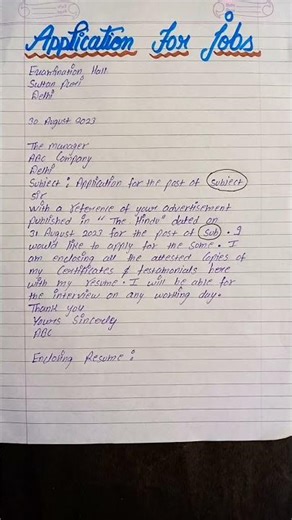 Application For Jobs
Examination Hall
Sultan Puri
Delhi
30 August 2023
The manager
ABC Company
Delhi
Subject : Application for the post of subject
Sir
With a reference of your advertisement
published in " The Hindu" dated on
31 August 2023 for the post of Sub . I
would like to apply for the same . I
am enclosing all the attested copies of
my certificates & testamonials here
with my resume . I will be able for
the interview on any working day.
Thank you
Yours Sincerely
ABC
Encloing Resume :